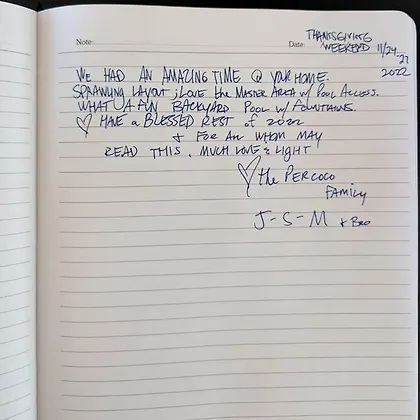 Note:
Date: THANKSGIVING
WEEKEND 11/24-27
2022
WE HAD AN AMAZING TIME @ YOUR HOME.
SPRAWLING LAYOUT ; LOVE the MASTER AREA w/ POOL ACCESS.
WHAT A FUN BACKYARD POOL w/ FOUNTAINS.
♡ HAVE A BLESSED REST of 2022
& FOR All WHOM MAY
READ THIS. MUCH LOVE & LIGHT
♡ the PERCOCO
FAMILY
J-S-M & Bro